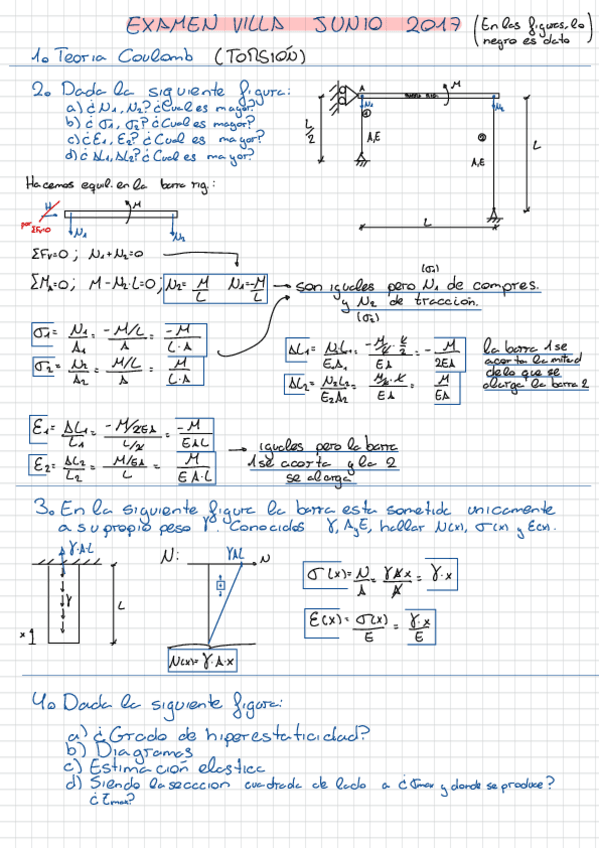 EXAMEN VILLA JUNIO 2017 (En las figuras, lo negro es dato)
1. Teoria Coulomb (TORSIÓN)
2. Dada la siguiente figura:
a) ¿N1, N2? ¿Cual es mayor?
b) ¿σ1, σ2? ¿Cual es mayor?
c) ¿ε1, ε2? ¿Cual es mayor?
d) ¿ΔL1, ΔL2? ¿Cual es mayor?
A M
N1 N2
1 2
L/2 A,E A,E L
L
Hacemos equil. en la barra rig:
H M
por ΣFH=0 N1 N2
ΣFV=0; N1+N2=0
ΣMA=0; M-N2·L=0; N2= M/L N1=-M/L → son iguales pero N1 (σ1) de compres.
y N2 (σ2) de tracción.
σ1= N1/A1 = -M/L/A = -M/L·A
σ2= N2/A2 = M/L/A = M/L·A
ΔL1= N1·L1/E1A1 = -M/L·L/2/EA = -M/2EA
ΔL2= N2L2/E2A2 = M/L·L/EA = M/EA
la barra 1 se
acorta la mitad
de lo que se
alarga la barra 2
ε1= ΔL1/L1 = -M/2EA/L/2 = -M/EAL
ε2= ΔL2/L2 = M/EA/L = M/EA·L
→ iguales pero la barra
1 se acorta y la 2
se alarga
3. En la siguiente figura la barra esta sometida unicamente
a su propio peso γ. Conocidos γ, A y E, hallar N(x), σ(x) y ε(x).
γ·A·L N: γAL N
γ L
x1
N(x)= γ·A·x
σ(x)= N/A = γAx/A = γ·x
ε(x)= σ(x)/E = γ·x/E
4. Dada la siguiente figura:
a) ¿Grado de hiperestaticidad?
b) Diagramas
c) Estimación elastica
d) Siendo la seccion cuadrada de lado a ¿σmax y donde se produce?
¿τmax?